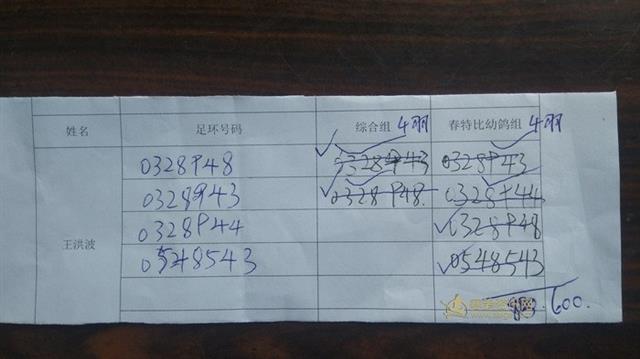 姓名 足环号码 综合组 4羽 春特比幼鸽组 4羽
0328948 0328943 0328943
0328943 0328948. 0328944
0328944 0328948
王洪波 0548543 0548543
600.